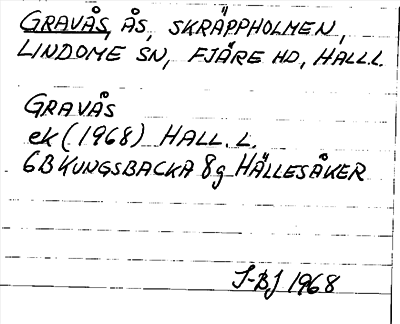 GRAVÅS, ÅS, SKRÄPPHOLMEN,
LINDOME SN, FJÄRE HD, HALL.L.
GRAVÅS
ek (1968) HALL. L.
6B KUNGSBACKA 8g HÄLLESÅKER
J-BJ 1968